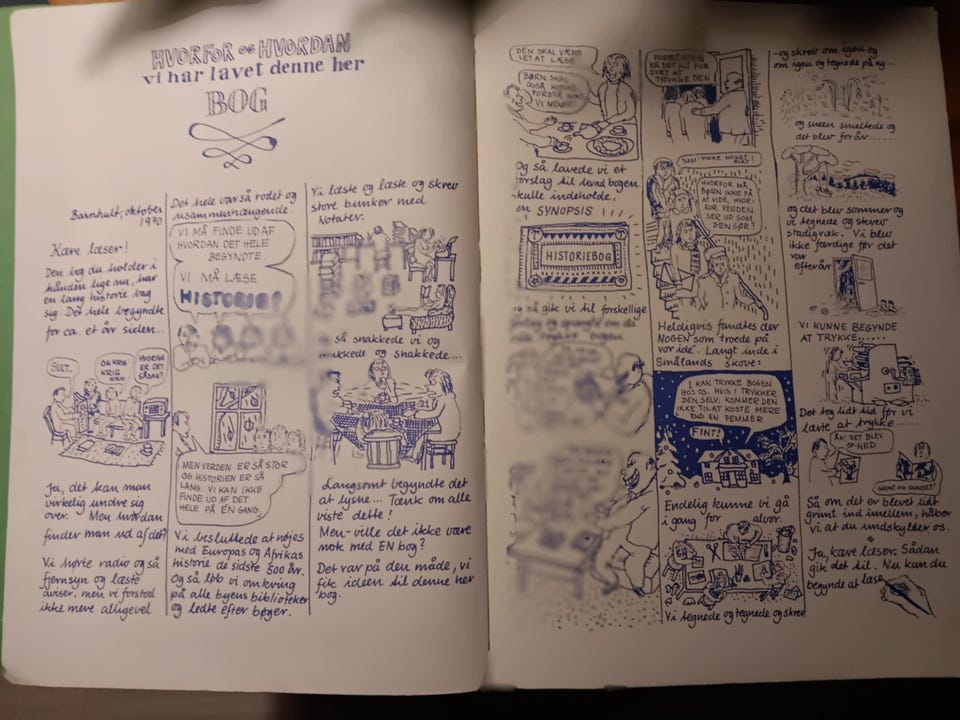 HVORFOR OG HVORDAN
vi har lavet denne her
BOG
Barnhult, oktober
1970
Kære læser!
Den bog du holder i
hånden lige nu, har
en lang historie bag
sig. Det hele begyndte
for ca. et år siden...
SULT..
OG KRIG
KRIG
KRIG
HVORFOR
ER DET
SÅDAN?
Ja, det kan man
virkelig undre sig
over. Men hvordan
finder man ud af det?
Vi hørte radio og så
fjernsyn og læste
aviser, men vi forstod
ikke mere alligevel
Det hele var så rodet og
usammenhængende.
VI MÅ FINDE UD AF
HVORDAN DET HELE
BEGYNDTE.
VI MÅ LÆSE
HISTORIE!
MEN VERDEN ER SÅ STOR
OG HISTORIEN ER SÅ
LANG. VI KAN IKKE
FINDE UD AF DET
HELE PÅ EN GANG.
Vi besluttede at nøjes
med Europas og Afrikas
historie de sidste 500 år.
Og så løb vi omkring
på alle byens biblioteker
og ledte efter bøger.
Vi læste og læste og skrev
store bunker med
Notater.
så snakkede vi og
snakkede og snakkede...
Langsomt begyndte det
at lysne... Tænk om alle
viste dette!
Men - ville det ikke være
nok med EN bog?
Det var på den måde, vi
fik ideen til denne her
bog.
DEN SKAL VÆRE
LET AT LÆSE
BØRN SKAL
OGSÅ KUNNE
FORSTÅ HVAD
VI MENER
Og så lavede vi et
forslag til hvad bogen
skulle indeholde,
en SYNOPSIS
HISTORIEBOG
og så gik vi til forskellige
ER DET
DYRT AT
TRYKKE DEN
HVORFOR MÅ
BØRN IKKE FÅ
AT VIDE, HVOR-
FOR VERDEN
SER UD SOM
DEN GØR?
Heldigvis fandtes der
NOGEN som troede på
vor ide'. Langt inde i
Smålands skove:
I KAN TRYKKE BOGEN
HOS OS. HVIS I TRYKKER
DEN SELV, KOMMER DEN
IKKE TIL AT KOSTE MERE
END EN FEMMER
FINT!
Endelig kunne vi gå
i gang for alvor.
Vi tegnede og tegnede og skrev
- og skrev om igen og
om igen og tegnede på ny...
og sneen smeltede og
det blev forår......
og det blev sommer og
vi tegnede og skrev
stadigvæk. Vi blev
ikke færdige før det
var
efterår
VI KUNNE BEGYNDE
AT TRYKKE......
Det tog lidt tid før vi
lærte at trykke......
ÅH! DET BLEV
OP-NED
GRIMT OG SNAVSET!
Så om det er blevet lidt
grimt ind imellem, håber
vi at du undskylder os.
Ja, kære læser. Sådan
gik det til. Nu kan du
begynde at læse